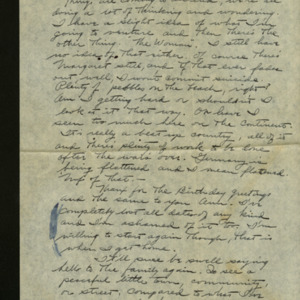 Thing, are coming to
doing a lot of thinking and wondering
I have a slight idea of what I'm
going to venture and then there's the
other thing. The Woman. I still have
no idea of that either. Of course there's
Margaret still and if that ever fades
out, well, I won't commit suicide
Plenty of pebbles on the beach, right?
Am I getting hard or shouldn't I
look at it that way. Over here I
seem to much like on the Continent.
It's really a beat up country, all of it
and there's plenty of work to be done
after the war's over. Germany is
being flattened and I mean flattened.
of that.
for the Birthday greetings
and the same to you Ann. I'm
completely lost all dates of any kind
and I'm ashamed of it too. I'm
willing to start again though, that is
when I get home.
It'll sure be swell saying
hello to the family again. To see a
peaceful little town, community,
or street. Compared to what I